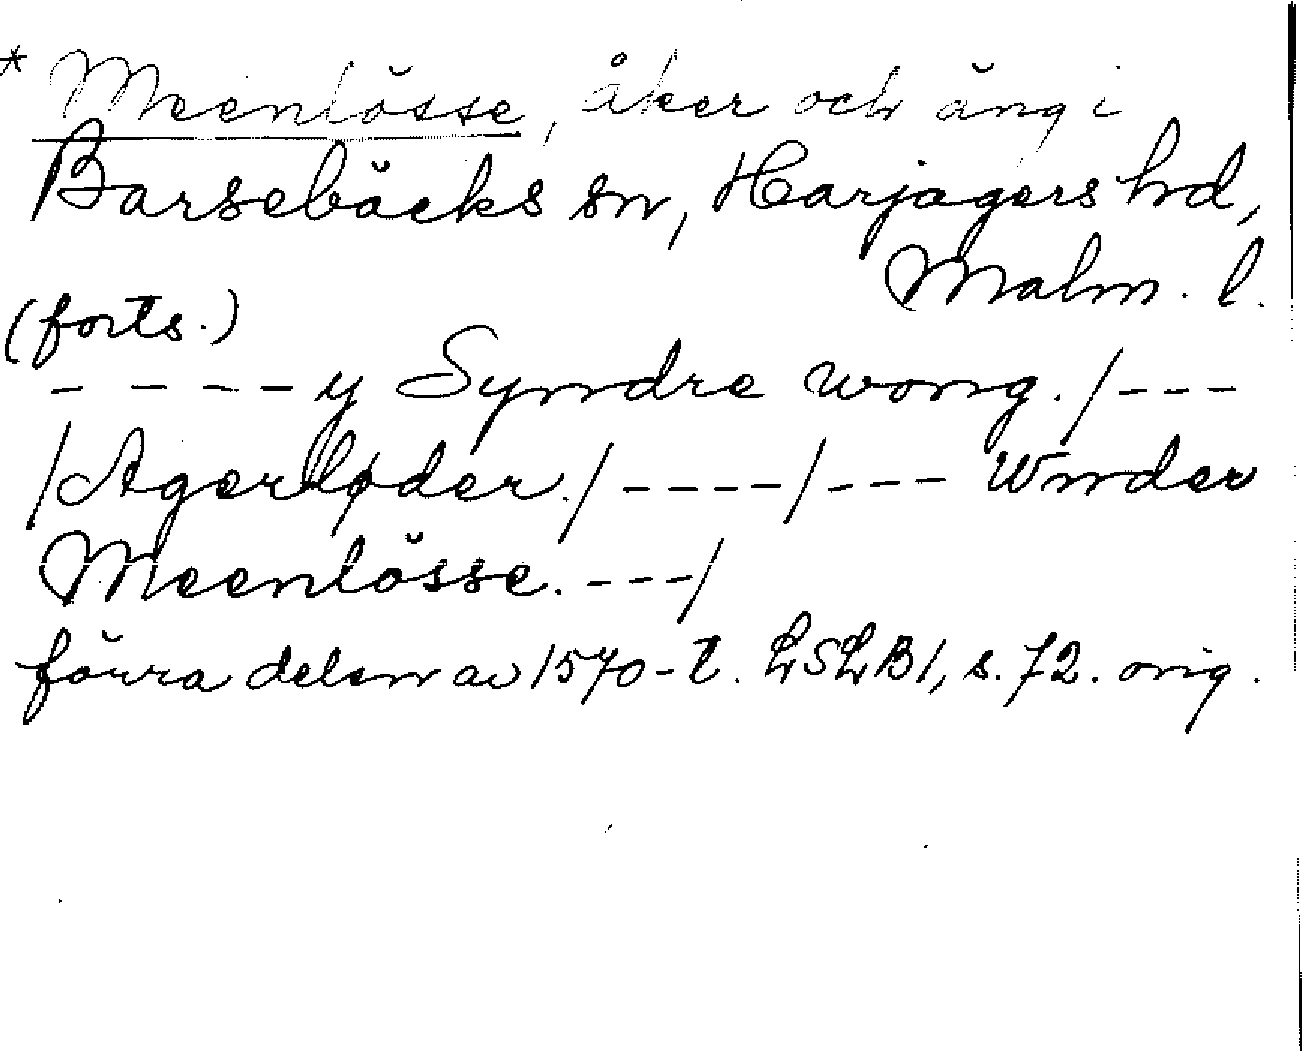 * Meenlösse, åker och äng i
Barsebäcks sn, Harjagers hd,
Malm. l.
(forts.)
- - - - y Syndre wong. /---
/Agerløder./ ----/--- Wnder
Meenlösse. ---/
förra delen av 1570-t. LSLB1, s. 72. orig.